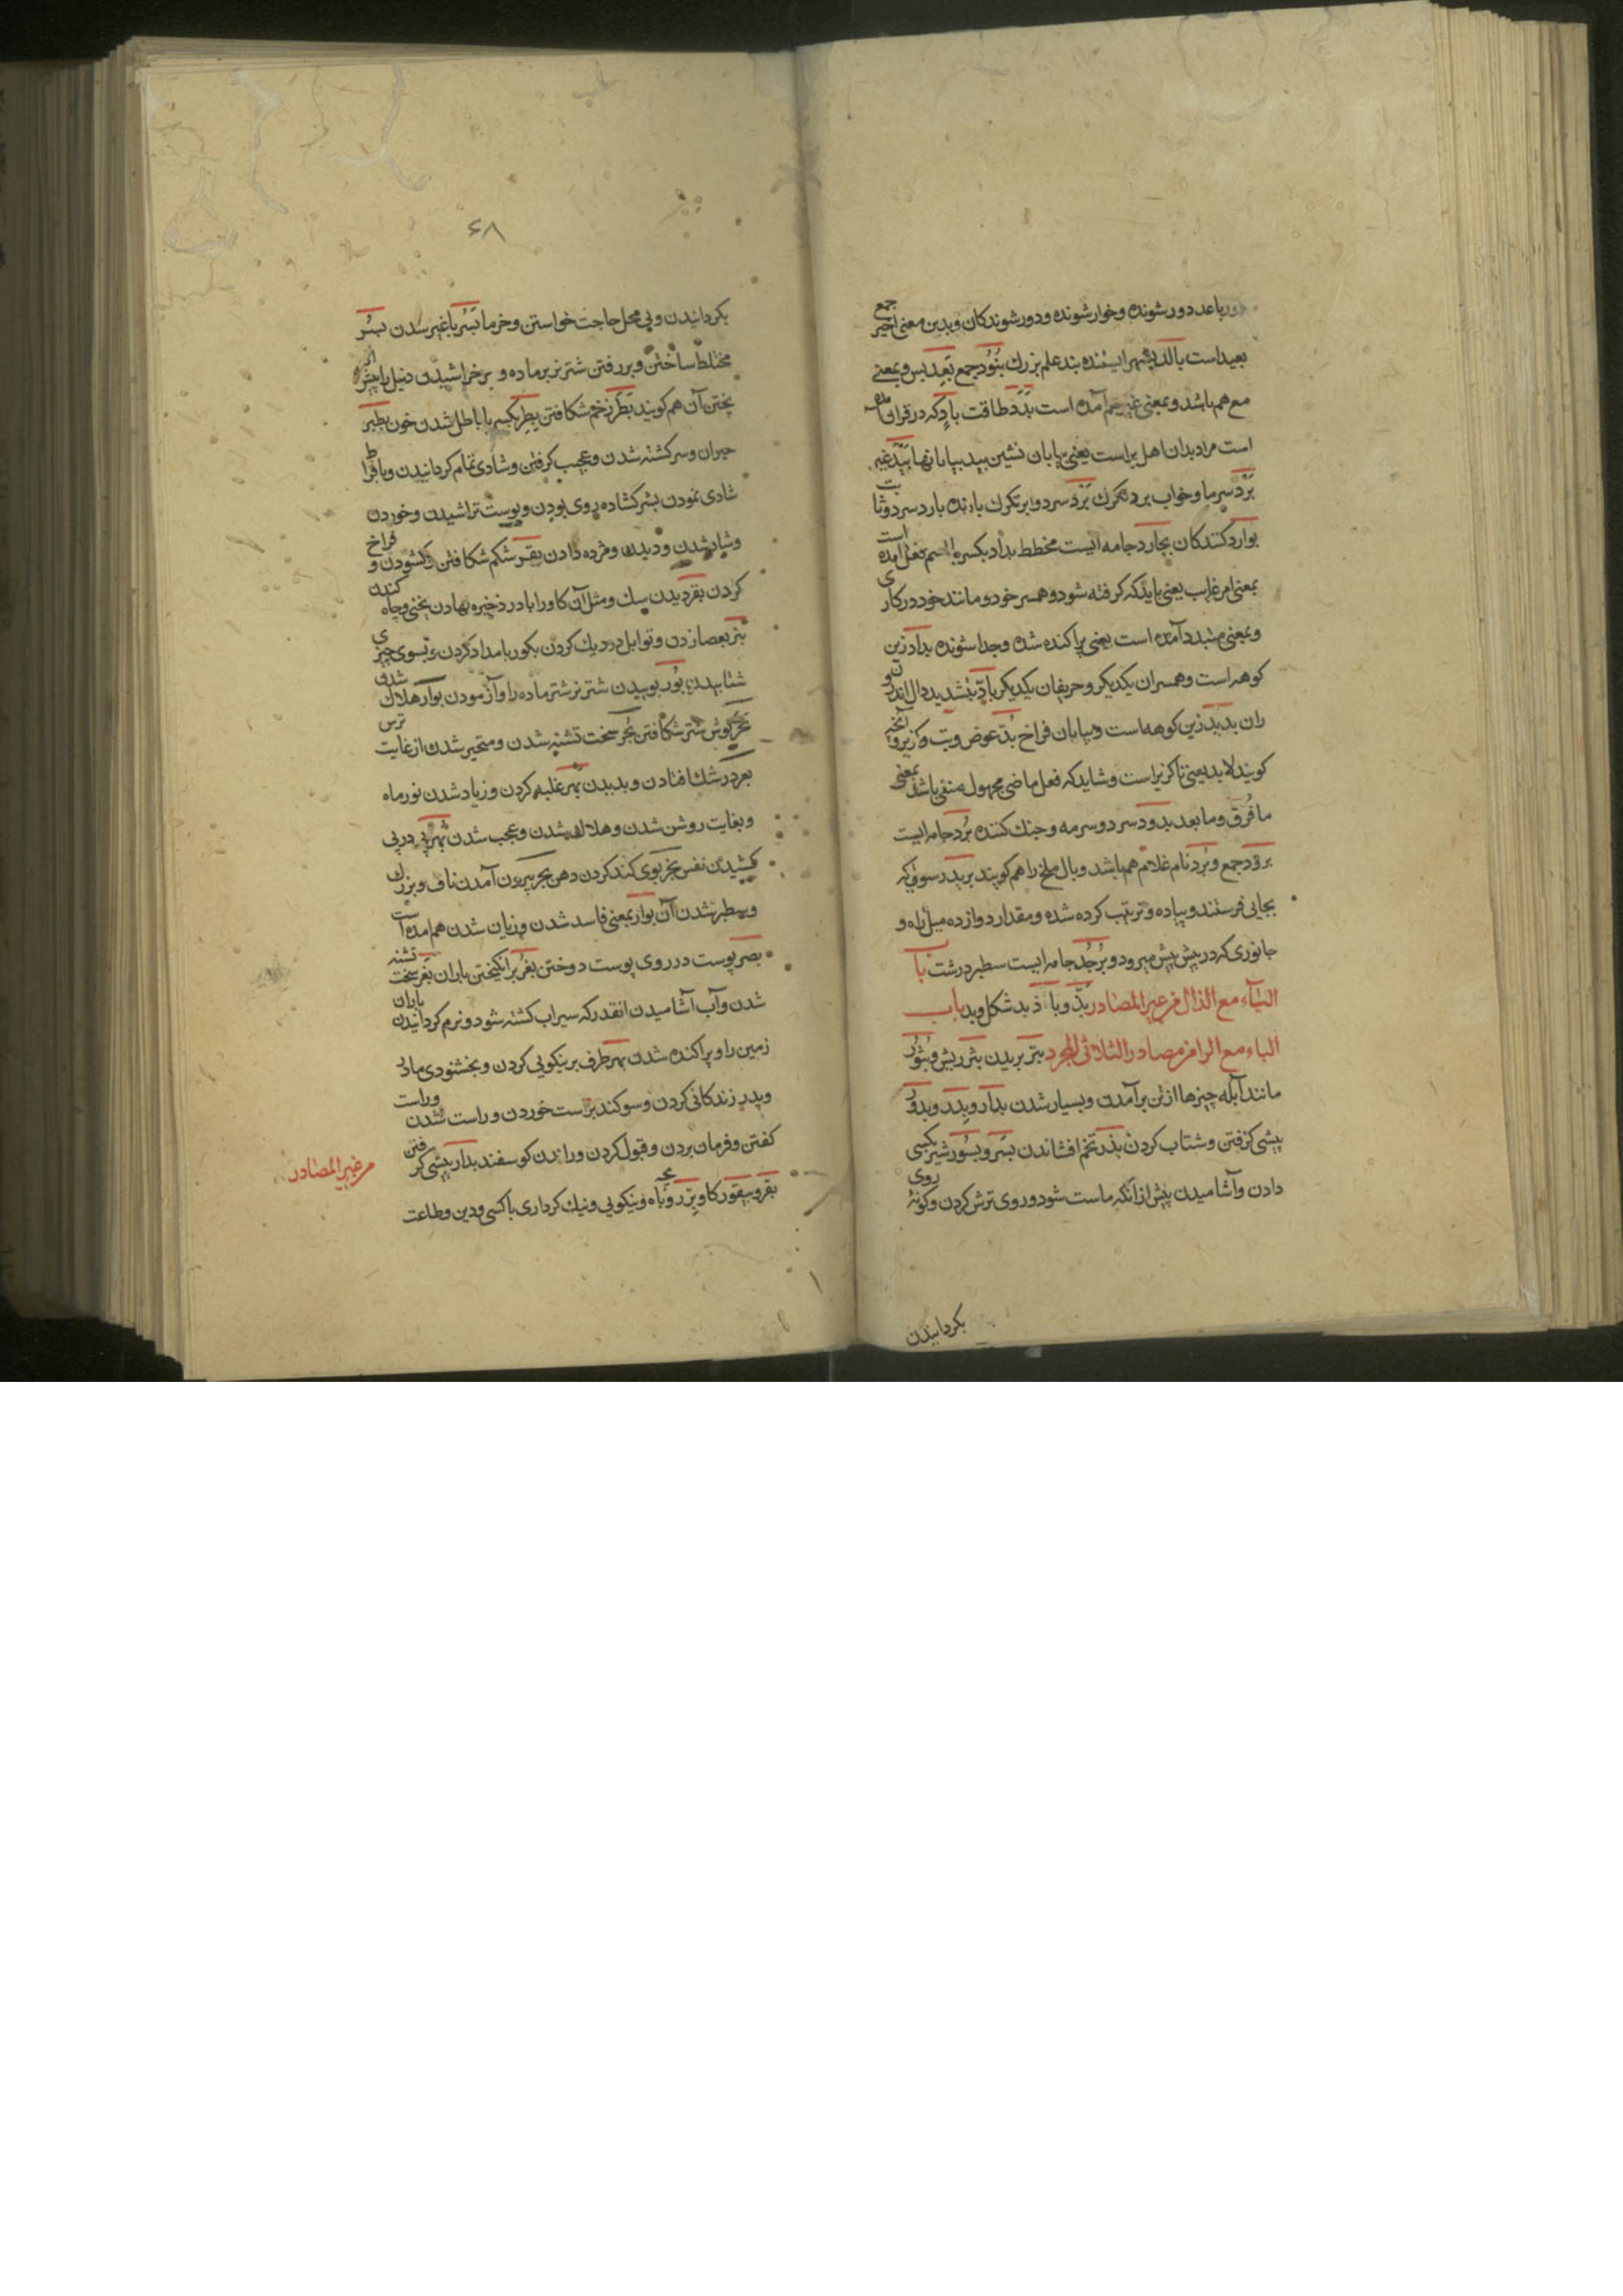 دور باعد دور شونده و خوار شونده و دور شوندکان و بدین معنی اخیر جمع
بعید است بالد بشهر ایستنده بند علم بزرك بنود جمع بعد پس و بمعنی
مع هم باشد و بمعنی غیر هم آمده است بدد طاقت باد که در قران
است مراد بدان اهل بر است یعنی بیابان نشین بید بیابانها بید غیر
برد سرما و خواب برد تکرك برد سرد و ابر تکرك بارنده بارد سرد و ثابت
بوارد کنندکان بجاد جامه ایست مخطط بداد بکسره اسم فعل آمده است
بمعنی امر غایب یعنی باید که کرفته شود و همسر خود و مانند خود در کاری
و بمعنی متبدد آمده است یعنی پراکنده شده و جدا شونده بداد زین
کوهه است و همسران یکدیکر و حریفان یکدیکر باد بتشدید دال اندرون
ران بدید زین کوهه است و بیابان فراخ بد عوض و بت و کزیر و آنچه
کویند لابد یعنی ناکزیر است و شاید که فعل ماضی مجهول منفی باشد بمعنی
ما فرق و ما بعد بدود سرد و سرمه و جنك کننده برد جامه ایست
برود جمع و برد نام غلام هم باشد و بال ملخ را هم کویند برید رسولی که
بجایی فرستند و پیاده و ترتیب کرده شده و مقدار دوازده میل راه و
جانوری که در پیش پیش میرود و برجد جامه ایست سطبر درشت باب
الباء مع الذال من غیر المصادر بذ و باذ بد شکل و بد باب
الباء مع الرا من مصادر الثلاثی المجرد بتر بریدن بثر ریش و بثور
مانند آبله چیزها از تن برآمدن و بسیار شدن بدار و بدر و بدور
پیشی کرفتن و شتاب کردن بذر تخم افشاندن بسر و بسور شیر بکسی
دادن و آشامیدن پیش از آنکه ماست شود و روی ترش کردن و کونه روی
بکردانیدن
۶۸
بکردانیدن و بی محل حاجت خواستن و خرما بسر با غیر سدن بسر
مختلط ساختن و بر رفتن شتر نر بر ماده و بر خراشیدن دنبل را پیش از
پختن آن هم کویند بطر زخم شکافتن بطر بکسر با باطل شدن خون بطر
حیران و سرکشته شدن و عجب کرفتن و شادی تمام کردانیدن و بافراط
شادی نمودن بشر کشاده روی بودن و پوست تراشیدن و خوردن
و شاد شدن و دیدن و مژده دادن بقر شکم شکافتن و کشودن و فراخ
کردن بقر دیدن سك و مثل آن کاو را بادر ذخیره نهادن یخنی و چاه کندن
بزر بعصا زدن و توابل در دیك کردن بکور بامداد کردن و بسوی چیزی
شتابیدن بور بوییدن شتر نر شتر ماده را و آزمودن بوار هلاك شدن
بحر کوش شتر شکافتن بحر سخت تشنه شدن و متحیر شدن از غایت ترس
بعر در شك افتادن و بدیدن بهر غلبه کردن و زیاد شدن نور ماه
و بغایت روشن شدن و هلاك شدن و عجب شدن بهر پی در پی
کشیدن نفس بخر بوی کند کردن دهن بجر بیرون آمدن ناف و بزرك
و سطبر شدن آن بوار بمعنی فاسد شدن و زیان شدن هم آمده است
بصر پوست در روی پوست دوختن بغر برانکیختن باران بغر سخت تشنه
شدن و آب آشامیدن انقدر که سیراب کشته شود و نرم کردانیدن باران
زمین را و پراکنده شدن بهر طرف بر نیکویی کردن و بخشنودی مادر
و پدر زندکانی کردن و سوکند براست خوردن و راست شدن و راست
کفتن و فرمان بردن و قبول کردن و راندن کوسفند بدار پیشی کرفتن
من غیر المصادر
بقر و بیقور کاو بر روباه و نیکویی و نیك کرداری با کسی و دین و طاعت